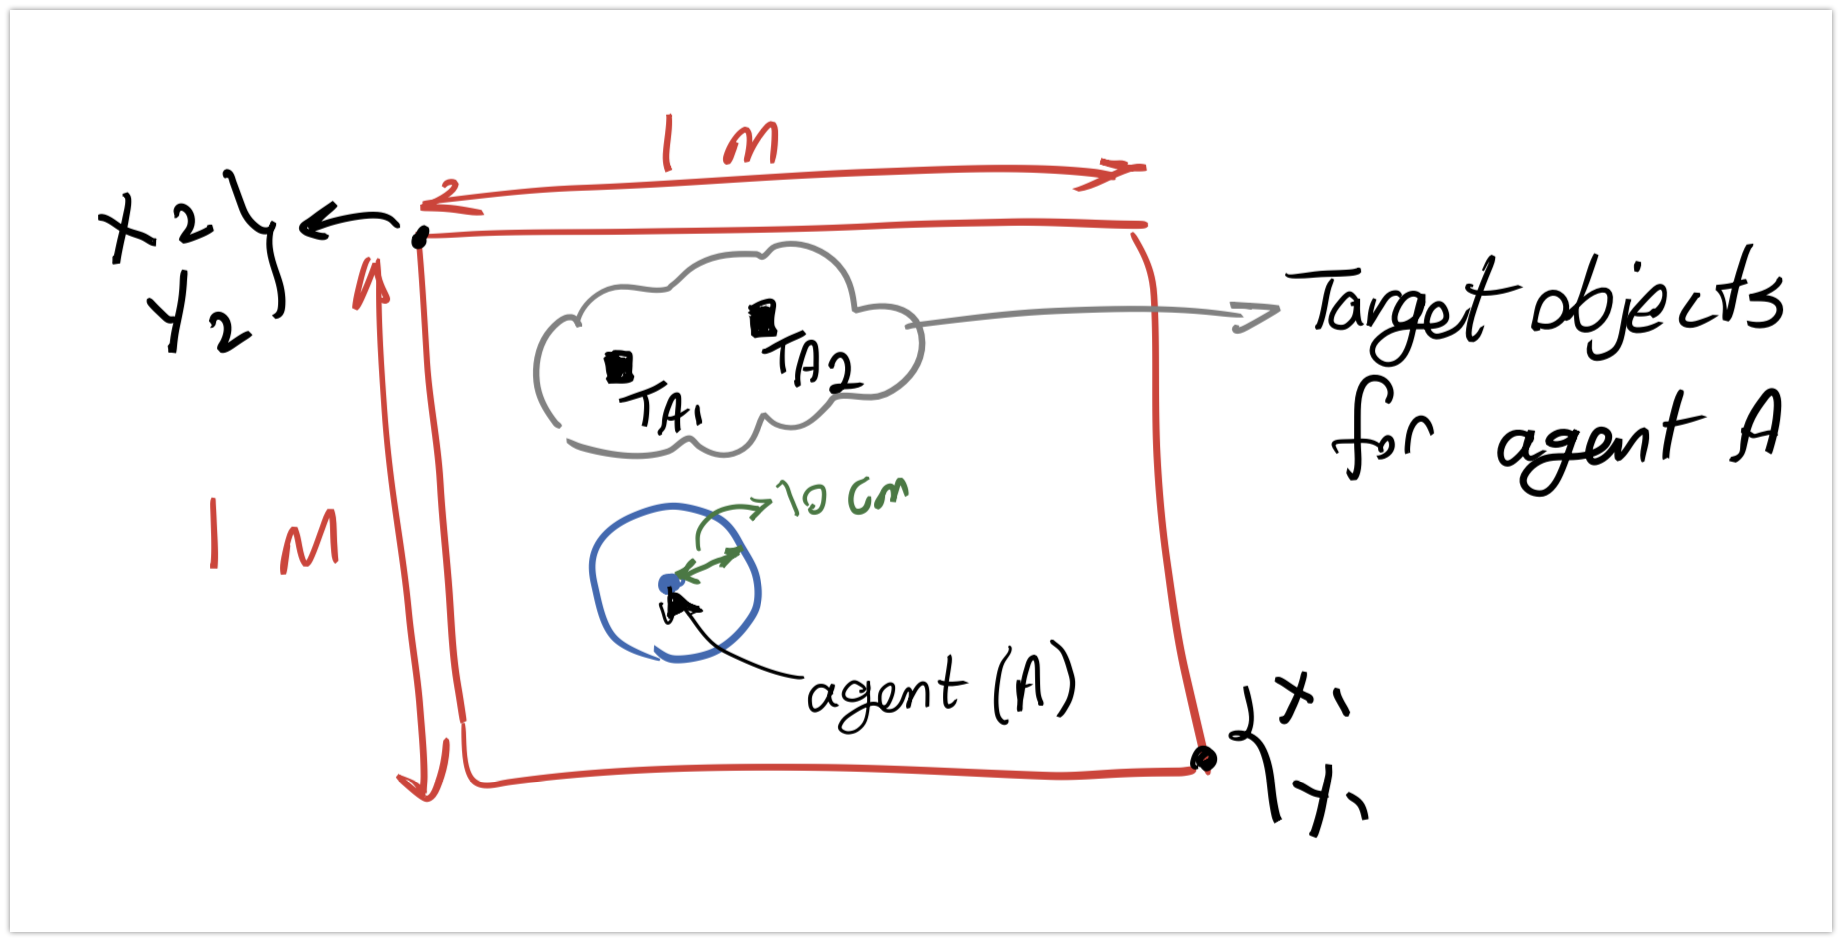 1 M
X2
Y2
TA2
TA1
Target objects
for agent A
10 cm
1 M
agent (A)
X1
Y1